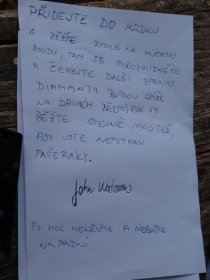 PŘIDEJTE DO KROKU
A BĚŽTE RYCHLE NA MUCHOVU
BOUDU, TAM SE POROZHLÉDNĚTE
A ČEKEJTE DALŠÍ ZPRÁVU
DIAMANTY BUDOU SPÍŠE
NA DRUHÉM BŘEHU, ALE VY
BĚŽTE STEJNĚ JAKO TEĎ,
ABY VÁS NEPOTKALI
PAŠERÁKY.
John Watson
PO MOC NEKŘIČTE A NEBUĎTE
NÁPADNÍ